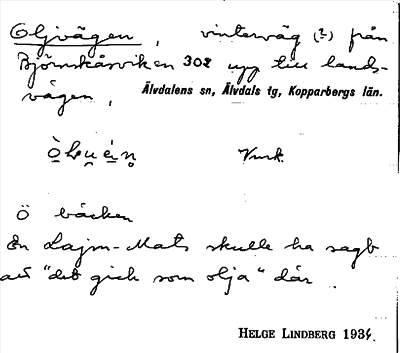 Oljvägen, vinterväg (?) från
Björnskårsviken 302 upp till lands-
vägen, Älvdalens sn, Älvdals tg, Kopparbergs län.
Vmk.
Ö bäcken
En Lajm-Mats skulle ha sagt
att "det gick som olja" där.
HELGE LINDBERG 1934.